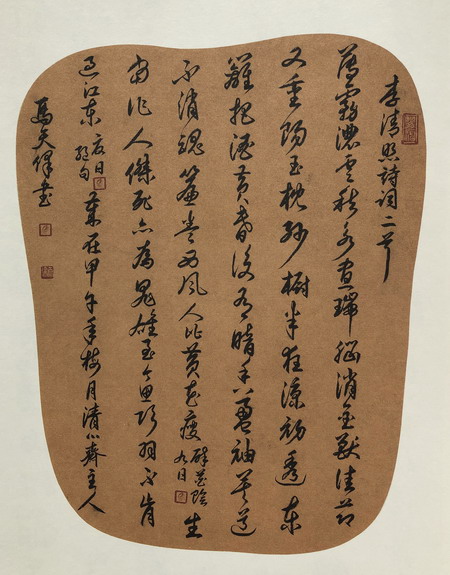 李清照詩词二首
薄霧濃雲愁永晝瑞腦消金獸佳節
又重陽玉枕紗橱半夜涼初透東
籬把酒黄昏後有暗香盈袖莫道
不消魂簾卷西風人比黄花瘦 醉花陰 九日 生
當作人傑死亦為鬼雄至今思項羽不肯
過江東 夏日 絕句 歲在甲午年梅月清心齋主人
馬 書